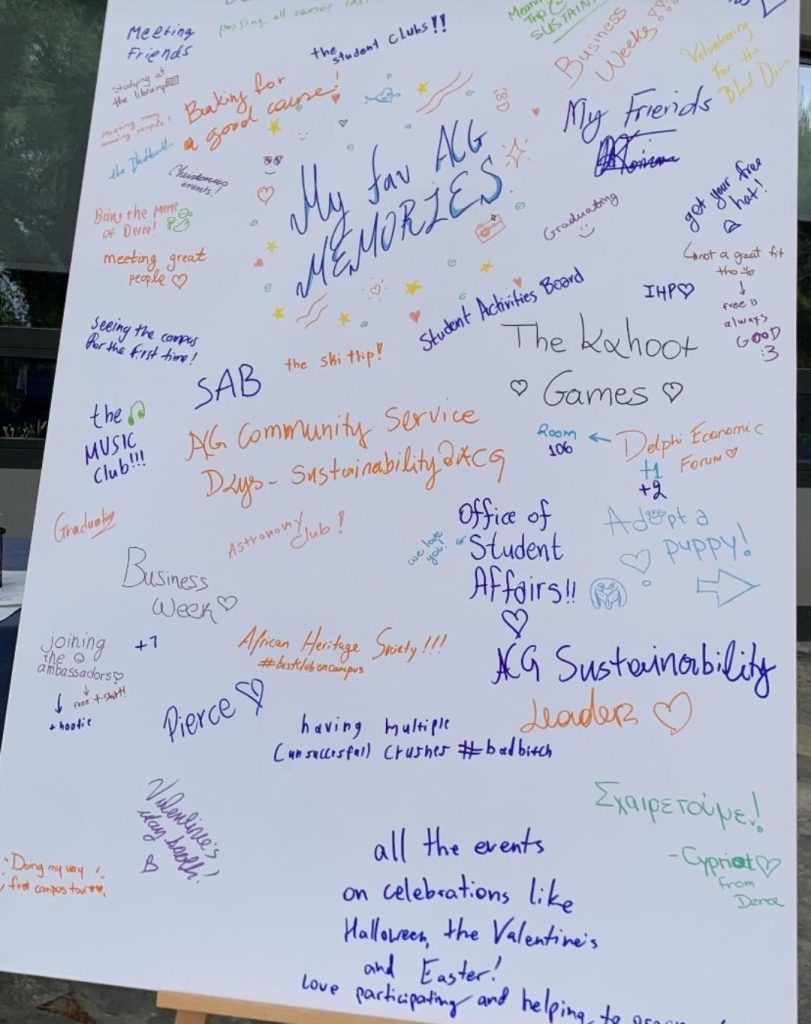 Meeting
Friends
passing all courses
the student clubs!!
SUSTAIN
Business
Weeks!!!
Volunteering
For the
Blood Drive
Studying at
the library
Baking for
a good cause!
Meeting many
amazing people!
the
Christmas
events!
My fav ACG
MEMORIES
My Friends
Being the meme
of Deree!
meeting great
people ♡
Graduating
get your free
hat!
not a great fit
tho
↓
free is
always
GOOD
:3
IHP♡
Student Activities Board
seeing the campus
for the first time!
the ski trip!
SAB
The Kahoot
♡ Games ♡
the
MUSIC
Club!!!
ACG Community Service
Days - Sustainability@ACG
Room
106
←
Delphi Economic
Forum ♡
+1
+2
Graduating
Astronomy
Club!
we love
you!
Office of
Student
Affairs!!
♡
Adopt a
puppy!
Business
week♡
joining
the
ambassadors♡
+1
↓
free t-shirt!
↓
+ hoodie
African Heritage Society!!!
#bestcluboncampus
ACG Sustainability
Leaders ♡
Pierce ♡
having multiple
(unsuccesfull) crushes #badbitch
Valentine's
day booth!
Σχαιρετούμε!
- Cypriot♡
from
Deree
Doing my very
first campus tour
all the events
on celebrations like
Halloween, the Valentine's
and Easter!
love participating and helping to